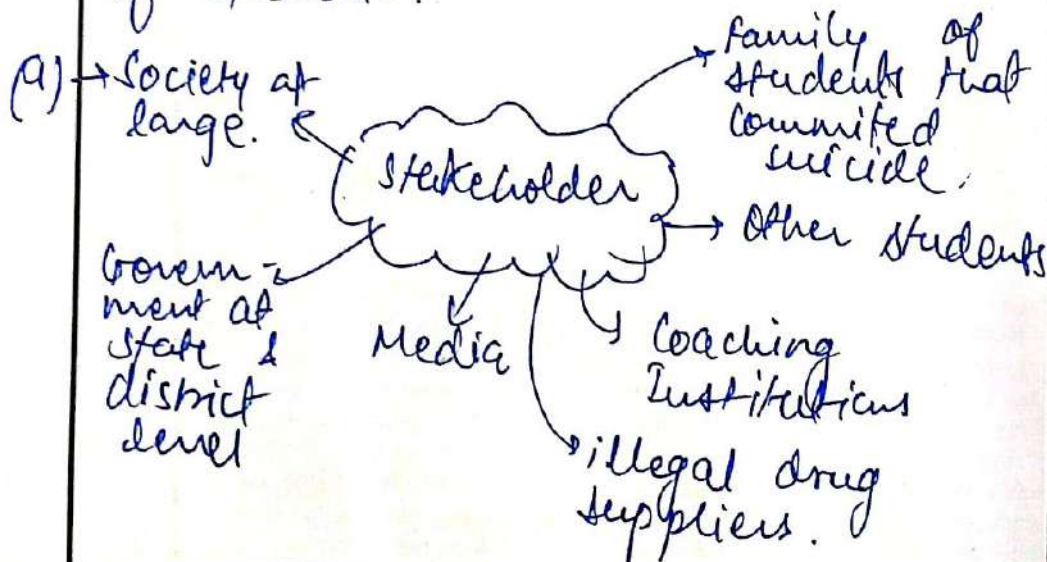 of
(a) → Society at
large.
Stakeholder
Family of
students that
commited
suicide.
Other students
Coaching
Institutions
illegal drug
suppliers.
Media
Govern-
ment at
state &
district
level